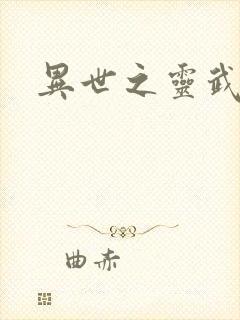 異世之靈武
曲赤